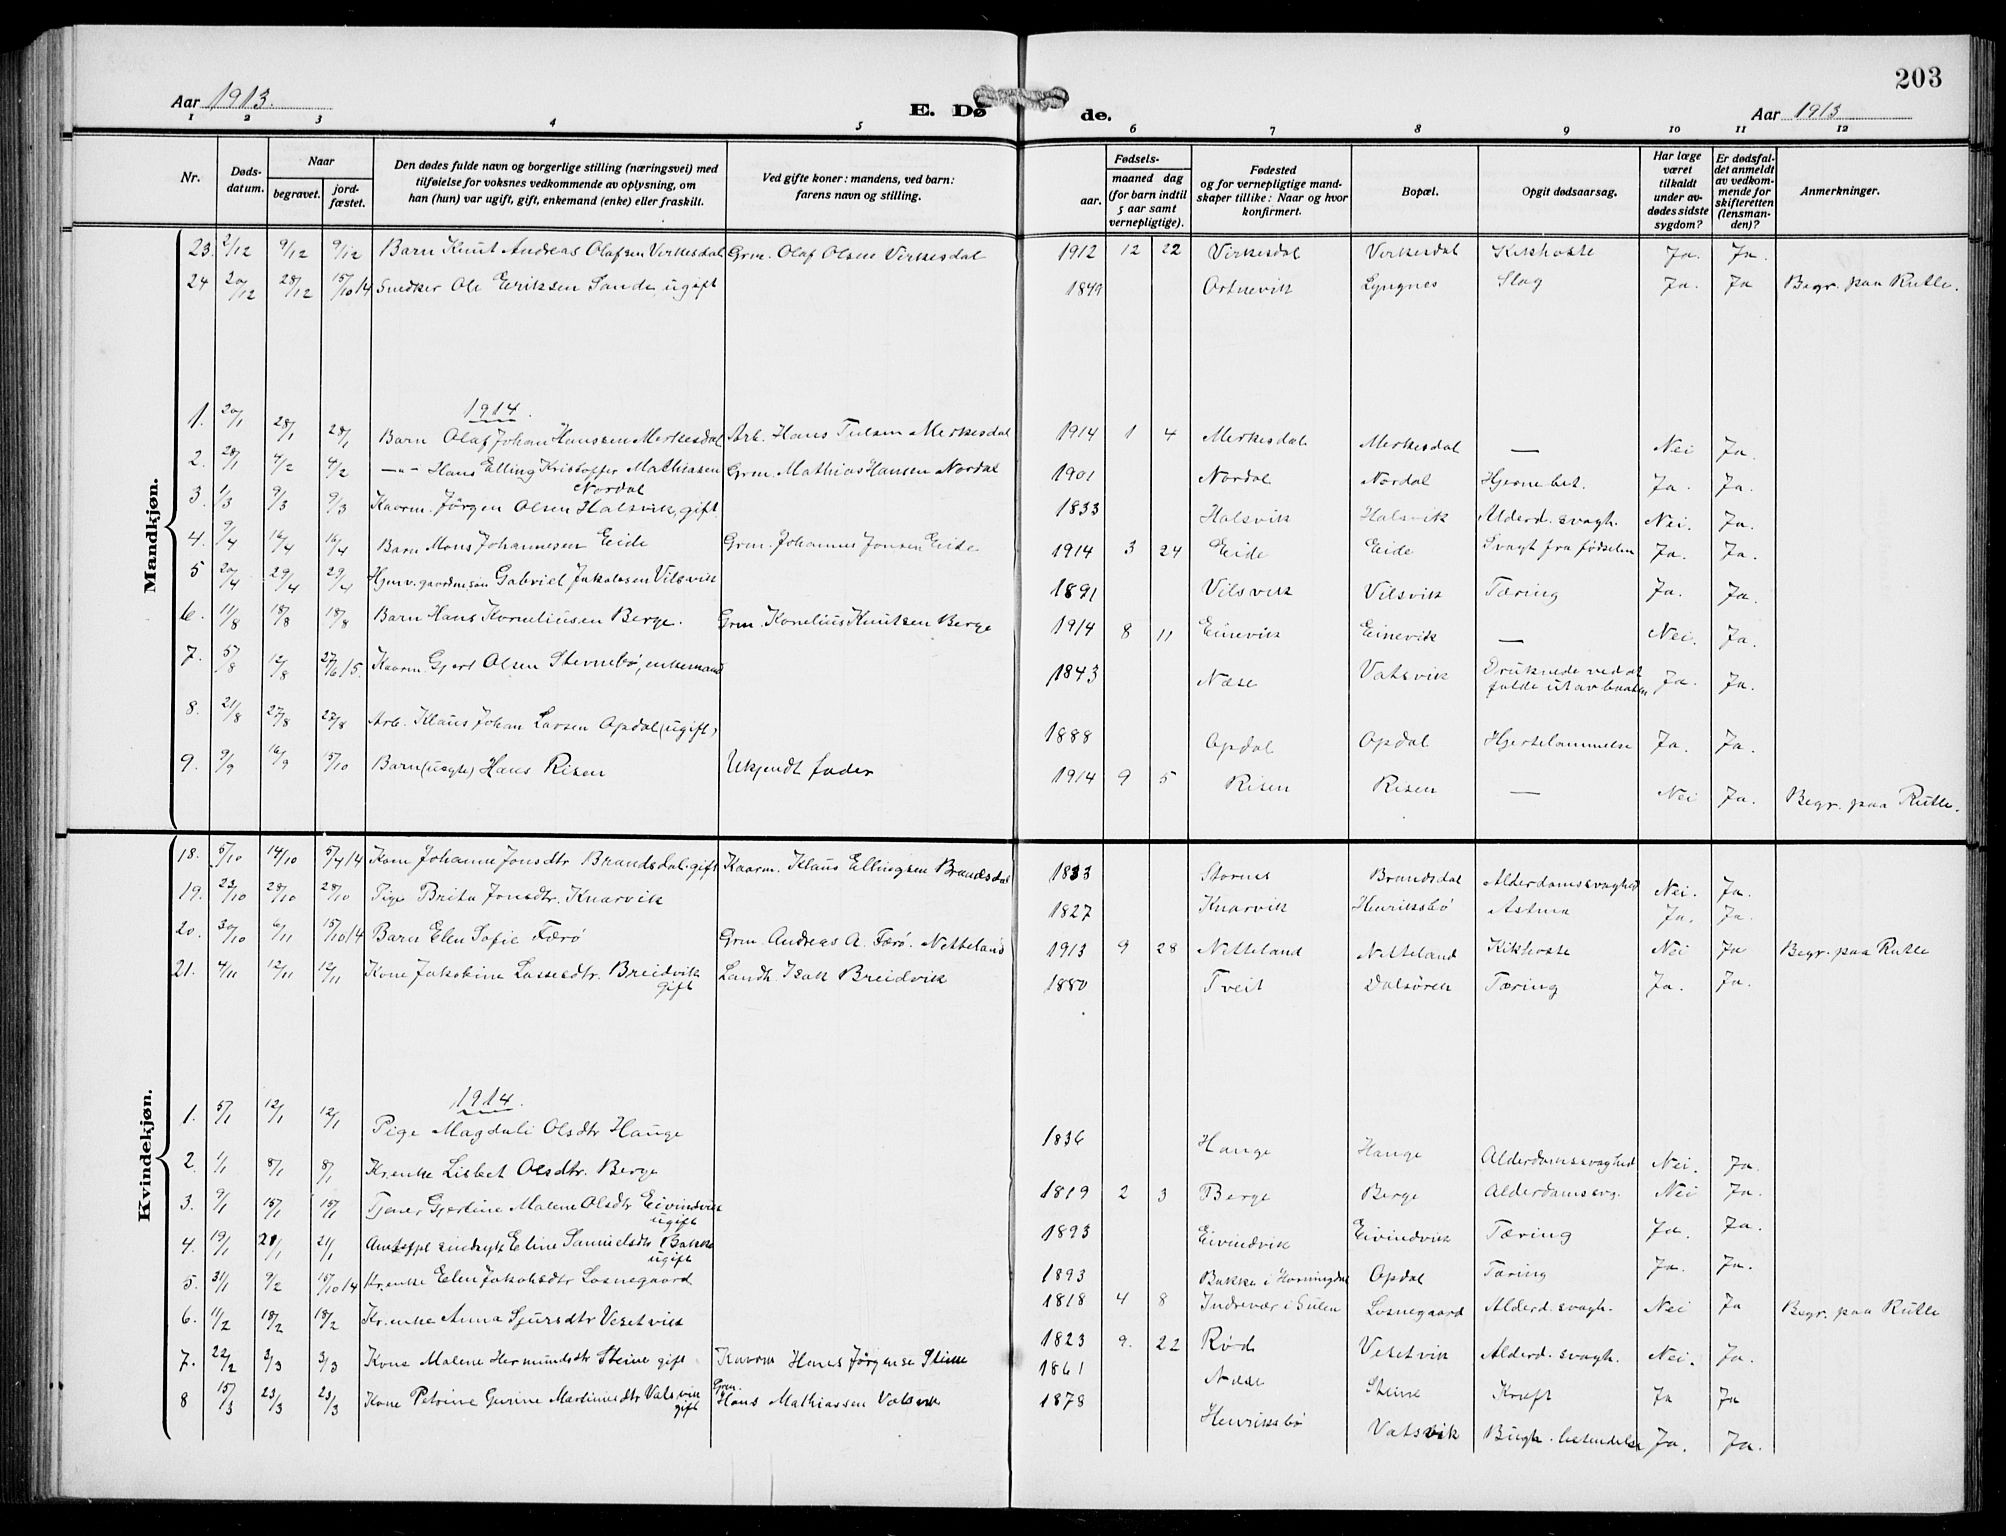 203
Aar 1913.
E. Døde.
Aar 1913
1 2 3 4 5 6 7 8 9 10 11 12
Nr. | Dødsdatum. | Naar begravet. | jordfæstet. | Den dødes fulde navn og borgerlige stilling (næringsvei) med tilføielse for voksnes vedkommende av oplysning, om han (hun) var ugift, gift, enkemand (enke) eller fraskilt. | Ved gifte koner: mandens, ved barn: farens navn og stilling. | Fødsels- aar. maaned dag (for barn indtil 5 aar samt vernepligtige). | Fødested og for vernepligtige mandskaper tillike: Naar og hvor konfirmert. | Bopæl. | Opgit dødsaarsag. | Har læge været tilkaldt under avdødes sidste sygdom? | Er dødsfaldet anmeldt av vedkommende for skifteretten (lensmanden)? | Anmerkninger.
Mandkjøn.
23. 2/12 9/12 9/12 Barn Knut Andreas Olafsen Virkesdal Grm. Olaf Olsen Virkesdal 1912 12 22 Virkesdal Virkesdal Kikhoste Ja. Ja.
24 20/12 28/12 15/10 14 Snedker Ole Eriksen Sande, ugift 1849 Ortnevik Lyngnes Slag Ja. Ja Begr. paa Rutle.
1914.
1. 20/1 28/1 28/1 Barn Olaf Johan Hanssen Merkesdal Arb. Hans Merkesdal 1914 1 4 Merkesdal Merkesdal — Nei Ja.
2. 28/1 4/2 4/2 —"— Hans Elling Kristoffer Mathiasen Nordal Grm. Mathias Hansen Nordal 1901 Nordal Nordal Hjernebet. Ja. Ja.
3. 1/3 9/3 9/3 Kaarm. Jørgen Olsen Halsvik, gift 1833 Halsvik Halsvik Alderd. svagh. Nei. Ja.
4. 9/4 16/4 16/4 Barn Mons Johannesen Eide Grm. Johannes Jonsen Eide 1914 3 24 Eide Eide Svagt fra fødselen Ja. Ja.
5 20/4 29/4 29/4 Hjmv. gaardmsøn Gabriel Jakobsen Vilsvik 1891 Vilsvik Vilsvik Tæring Ja. Ja.
6. 11/8 18/8 18/8 Barn Hans Korneliusen Berge. Grm. Kornelius Knutsen Berge 1914 8 11 Einevik Einevik — Nei. Ja.
7. 5/8 12/8 27/6 15. Kaarm. Gjert Olsen Stevnebø, enkemand 1843 Næse Vatsvik Druknede ved at falde ut av baaten Ja. Ja.
8. 21/8 27/8 27/8 Arb. Klaus Johan Larsen Opdal (ugift) 1888 Opdal Opdal Hjertelammelse Ja. Ja.
9. 9/9 16/9 15/10 Barn (uegte) Hans Risen Ukjendt fader 1914 9 5 Risen Risen — Nei Ja. Begr. paa Rutle.
Kvindekjøn.
18. 5/10 14/10 5/4 14 Kone Johanne Jonsdtr Brandsdal. gift Kaarm. Klaus Ellingsen Brandsdal 1833 Stornes Brandsdal Alderdomssvaghed Nei. Ja.
19. 23/10 28/10 28/10 Pige Brita Jonsdtr. Knarvik 1827 Knarvik Henriksbø Astma Ja. Ja.
20. 30/10 6/11 15/10 14 Barn Elen Sofie Færø Grm. Andreas A. Færø. Netteland 1913 9 28 Netteland Netteland Kikhoste Nei Ja Begr. paa Rutle
21. 4/11 12/11 12/11 Kone Jakobine Lassesdtr. Breidvik gift Landh. Isak Breidvik 1880 Tveit Dalsøren Tæring Ja. Ja.
1914.
1. 5/1 12/1 12/1 Pige Magdali Olsdtr Hauge 1836 Hauge Hauge Alderdomssvaghed Nei. Ja.
2. 1/1 8/1 8/1 Kr.enke Lisbet Olsdtr. Berge 1819 2 3 Berge Berge Alderdomssvg. Nei Ja.
3. 9/1 15/1 15/1 Tjener Gjertine Malene Olsdtr Eivindvik ugift 1893 Eivindvik Eivindvik Tæring Ja. Ja.
4. 19/1 21/1 21/1 Amtsfpl. sindsyk Eline Samuelsdtr Bakke ugift 1893 Bakke i Horningdal Opdal Tæring Ja. Ja.
5. 31/1 9/2 15/10 14 Kr.enke Elen Jakobsdtr Losnegaard 1818 4 8 Indrevær i Gulen Losnegaard Alderd. svagh. Nei Ja Begr. paa Rutle
6. 11/2 18/2 18/2 Kr.enke Anna Sjursdtr Vesetvik 1823 9. 22 Rød Vesetvik Alderd. svagh. Nei. Ja.
7. 22/2 3/3 3/3 Kone Malene Hermundsdtr Steine gift Kaarm Hans Jørgense Steine 1861 Næse Steine Kræft Ja Ja
8 15/3 23/3 23/3 Kone Petrine Gurine Martinusdtr Vatsvik gift Grm. Hans Mathiassen Vatsvik 1878 Henriksbø Vatsvik Bugh. betendelse Ja. Ja.